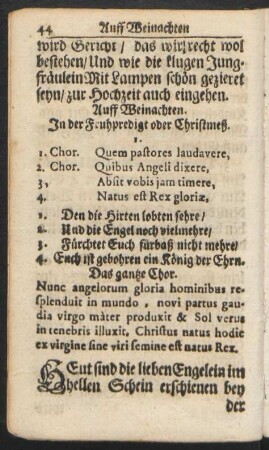 44 Auff Weinachten
wird Gericht / das wir recht wol
bestehen / Und wie die klugen Jung-
fräulein Mit Lampen schön gezieret
seyn / zur Hochzeit auch eingehen.
Auff Weinachten.
In der Fruhpredigt oder Christmeß.
1.
1. Chor. Quem pastores laudavere,
2. Chor. Quibus Angeli dixere,
3, Absit vobis jam timere,
4. Natus est Rex gloriæ,
1. Den die Hirten lobten sehre /
2. Und die Engel noch vielmehre /
3. Fürchtet Euch fürbaß nicht mehre /
4. Euch ist gebohren ein König der Ehrn.
Das gantze Chor.
Nunc angelorum gloria hominibus re-
splenduit in mundo, novi partus gau-
dia virgo máter produxit & Sol verus
in tenebris illuxit, Christus natus hodie
ex virgine sine viri semine est natus Rex.
HEut sind die lieben Engelein im
hellen Schein erschienen bey
der